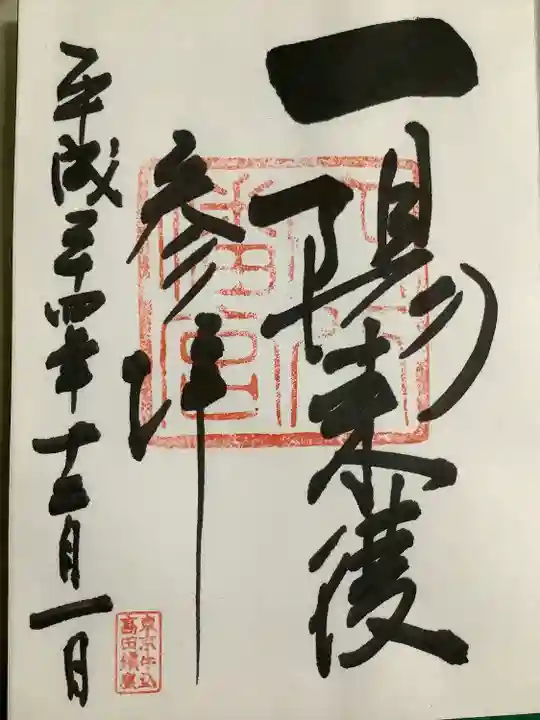 一陽来復
参拝
平成二十四年十二月一日
東京牛込
高田鎮座